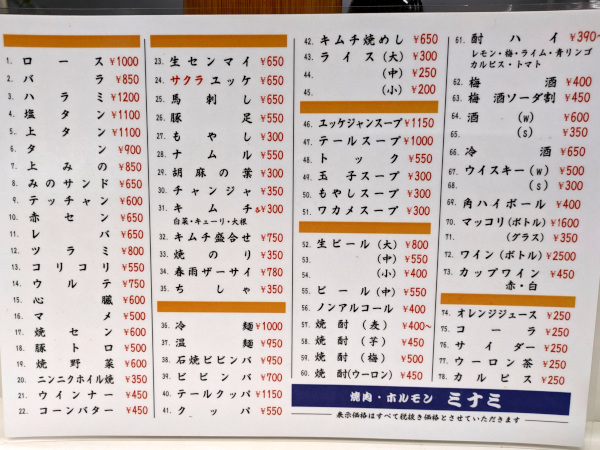 1. ロース ¥1000
2. バラ ¥850
3. ハラミ ¥1200
4. 塩タン ¥1100
5. 上タン ¥1100
6. タン ¥900
7. 上みの ¥850
8. みのサンド ¥650
9. テッチャン ¥600
10. 赤セン ¥650
11. レバ ¥650
12. ツラミ ¥800
13. コリコリ ¥550
14. ウルテ ¥750
15. 心臓 ¥600
16. マメ ¥500
17. 焼セン ¥600
18. 豚トロ ¥500
19. 焼野菜 ¥600
20. ニンニクホイル焼 ¥350
21. ウインナー ¥450
22. コーンバター ¥450
23. 生センマイ ¥650
24. サクラユッケ ¥650
25. 馬刺し ¥650
26. 豚足 ¥550
27. もやし ¥300
28. ナムル ¥550
29. 胡麻の葉 ¥300
30. チャンジャ ¥350
31. キムチ 各¥300
白菜・キューリ・大根
32. キムチ盛合せ ¥750
33. 焼のり ¥350
34. 春雨ザーサイ ¥780
35. ちしゃ ¥350
36. 冷麺 ¥1000
37. 温麺 ¥950
38. 石焼ビビンバ ¥950
39. ビビンバ ¥700
40. テールクッパ ¥1150
41. クッパ ¥550
42. キムチ焼めし ¥650
43. ライス(大) ¥300
44. (中) ¥250
45. (小) ¥200
46. ユッケジャンスープ ¥1150
47. テールスープ ¥1000
48. トック ¥550
49. 玉子スープ ¥300
50. もやしスープ ¥300
51. ワカメスープ ¥300
52. 生ビール(大) ¥800
53. (中) ¥550
54. (小) ¥400
55. ビール(中) ¥550
56. ノンアルコール ¥400
57. 焼酎(麦) ¥400~
58. 焼酎(芋) ¥450
59. 焼酎(梅) ¥500
60. 焼酎(ウーロン) ¥450
61. 酎ハイ ¥390~
レモン・梅・ライム・青リンゴ
カルピス・トマト
62. 梅酒 ¥400
63. 梅酒ソーダ割 ¥450
64. 酒(W) ¥600
65. (S) ¥350
66. 冷酒 ¥650
67. ウイスキー(W) ¥500
68. (S) ¥300
69. 角ハイボール ¥400
70. マッコリ(ボトル) ¥1600
71. (グラス) ¥350
72. ワイン(ボトル) ¥2500
73. カップワイン ¥450
赤・白
74. オレンジジュース ¥250
75. コーラ ¥250
76. サイダー ¥250
77. ウーロン茶 ¥250
78. カルピス ¥250
焼肉・ホルモン ミナミ
表示価格はすべて税抜き価格とさせていただきます